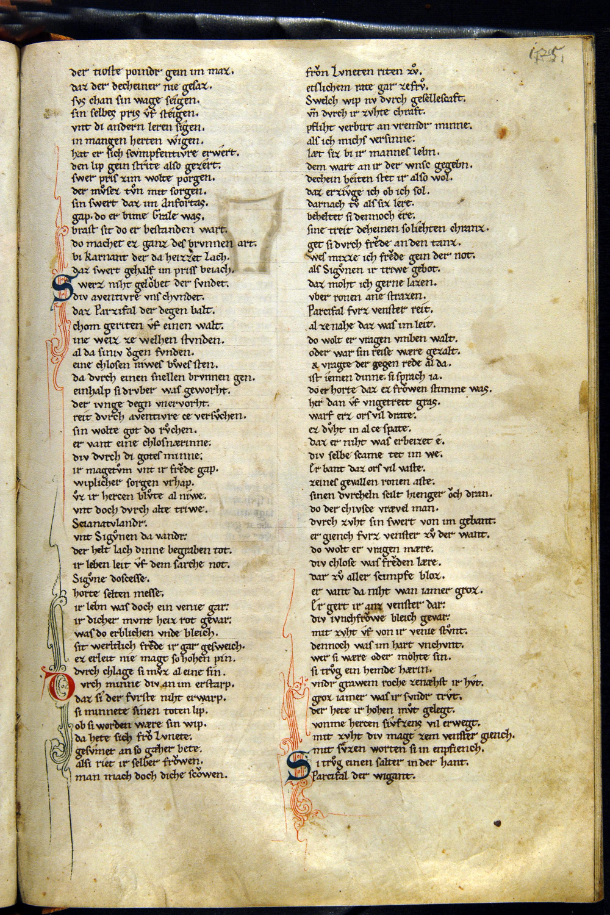 der tioste poinder gein im maz.
daz der decheiner nie gesaz.
sus chan sin wage seigen.
sin selbes pris vf steigen.
vnt di andern leren sigen.
in mangen herten wigen.
hat er sich scunpfentivre erwert.
den lip gein strite also gezert.
swer pris zim wolte porgen.
der muser tvn mit sorgen.
sin swert daz im Anfortas.
gap. do er bime Grale was.
brast sit do er bestanden wart.
do machet ez ganz des brvnnen art.
bi Karnant der da heizzet Lach.
daz swert gehalf im priss beiach.
Swerz niht gelovbet der svndet.
div aventivre vns chvndet.
daz Parzifal der degen balt.
chom geriten vf einen walt.
ine weiz ze welhen stvnden.
al da siniv ogen fvnden.
eine chlosen niwes bwes sten.
da dvrch einen snellen brvnnen gen.
einhalp si drvber was geworht.
der ivnge degn vnervorht.
reit dvrch aventivre ce versvchen.
sin wolte got do rvchen.
er vant eine chlosnærinne.
div dvrch di gotes minne.
ir magetvm vnt ir frede gap.
wiplicher sorgen vrhap.
vz ir hercen blvte al niwe.
vnt doch dvrch alte triwe.
Scianatvlandr.
vnt Sigvnen da vander.
der helt lach dinne begraben tot.
ir leben leit vf dem sarche not.
Sigvne doscesse.
horte selten messe.
ir lebn was doch ein venie gar.
ir dicher mvnt heiz rot gevar.
was do erblichen vnde bleich.
sit werltlich frede ir gar gesweich.
ez erleit nie magt so hohen pin.
dvrch chlage si mvz al eine sin.
Dvrch minne div an im erstarp.
daz si der fvrste niht erwarp.
si minnete sinen toten lip.
ob si worden wære sin wip.
da hete sich fro Lvnete.
gesvmet an so gæher bete.
als si riet ir selber frowen.
man mach doch diche scowen.
fron Lvneten riten zv.
etslichem rate gar zefrv.
Swelch wip nv dvrch gesellescaft.
vn dvrch ir zvhte chraft.
pfliht verbirt an vremder minne.
als ich michs versinne.
lat siz bi ir mannes lebn.
dem wart an ir der wnsc gegebn.
dechein beiten stet ir also wol.
daz erzivge ich ob ich sol.
darnach tv als siz lere.
beheltet si dennoch ere.
sine treit deheinen so liehten chranz.
get si dvrch frede an den tanz.
wes mizze ich frede gein der not.
als Sigvnen ir triwe gebot.
daz moht ich gerne lazen.
vber ronen ane strazen.
Parcifal fvrz venster reit.
al ze nahe daz was im leit.
do wolt er vragen vmben walt.
oder war sin reise wære gezalt.
er vragte der gegen rede al da.
ist iemen dinne. si sprach ia.
do er horte daz ez frowen stimme was.
her dan vf vngetretet gras.
warf erz ors vil drate.
ez dvht in al ce spate.
daz er niht was erbeizet e.
div selbe scame tet im we.
Er bant daz ors vil vaste.
zeines gevallen ronen aste.
sinen dvrcheln scilt hienger och dran.
do der chivsce vravel man.
dvrch zvht sin swert von im gebant.
er giench fvrz venster zv der want.
do wolt er vragen mære.
div chlose was freden lære.
dar zv aller scimpfe bloz.
er vant da niht wan iamer groz.
Er gert ir anz venster dar.
div ivnchfrowe bleich gevar.
mit zvht vf von ir venie stvnt.
dennoch was im hart vnchvnt.
wer si wære oder mohte sin.
si trvg ein hemde hærin.
vndr grawem roche zenæhst ir hvt.
groz iamer was ir svndr trvt.
der hete ir hohen mvt gelegt.
vonme hercen sivfzens vil erwegt.
mit zvht div magt zem venster giench.
mit svzen worten si in enpfiench.
Si trvg einen salter in der hant.
Parcifal der wigant.